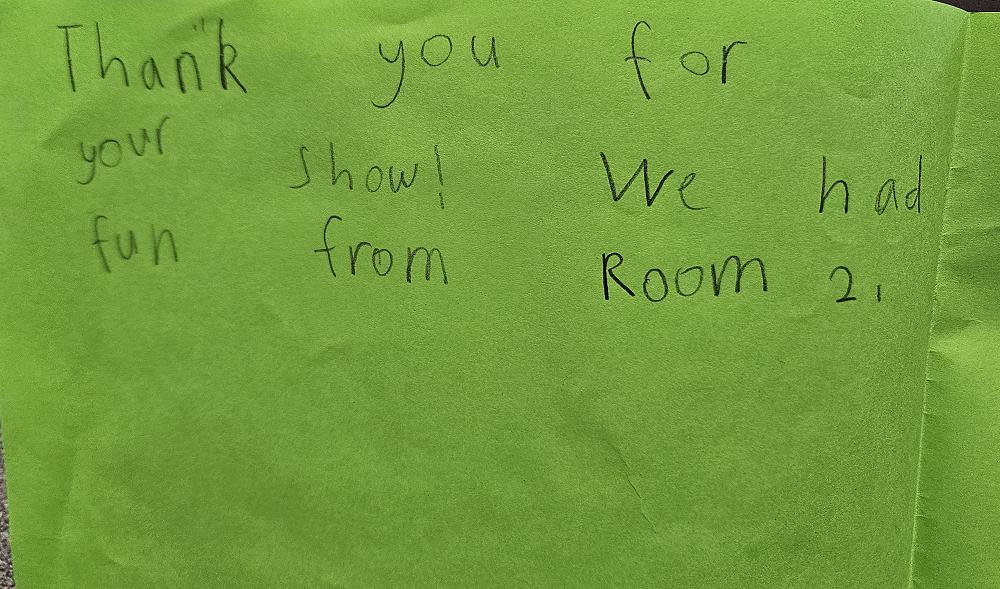 Thank you for
your show! We had
fun from Room 2.